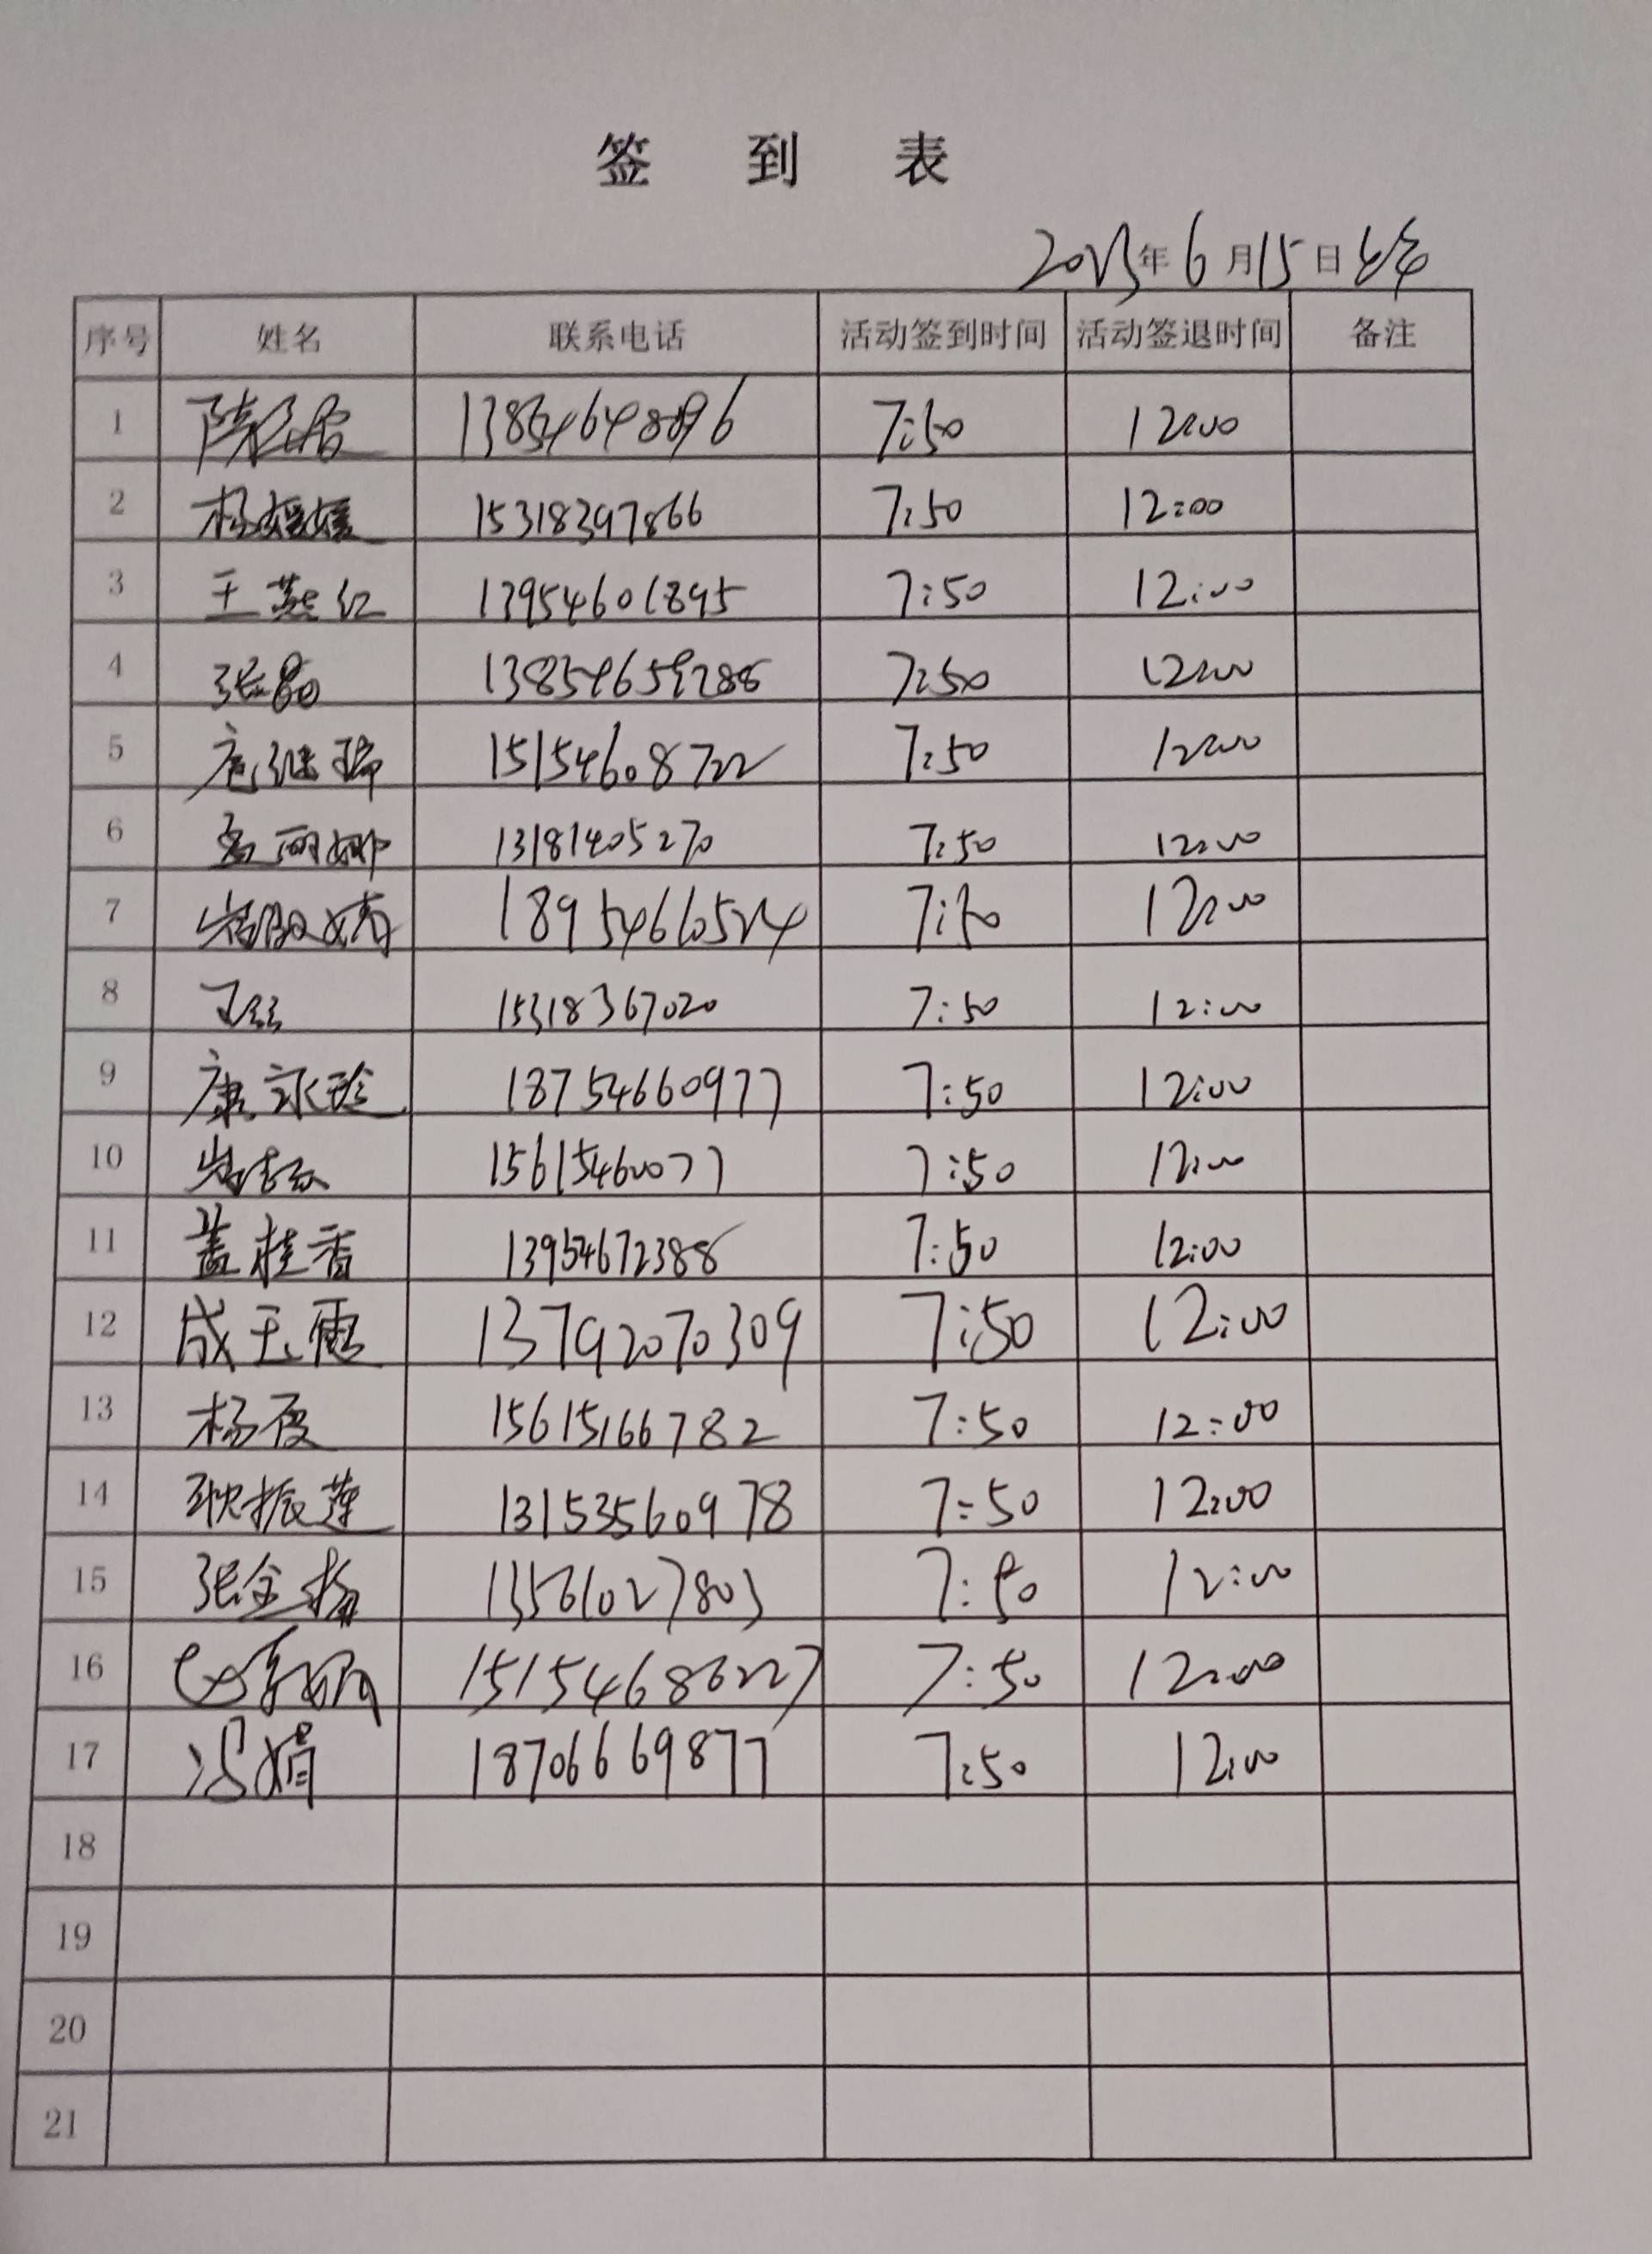 签 到 表
2023年6月15日
序号 姓名 联系电话 活动签到时间 活动签退时间 备注
1 7:50 12:00
2 杨媛媛 15318397866 7:50 12:00
3 王燕红 13954601895 7:50 12:00
4 张 13854659288 7:50 12:00
5 15154608722 7:50 12:00
6 高丽娜 13181405270 7:50 12:00
7 18954660524 7:50 12:00
8 15318367020 7:50 12:00
9 康永珍 18754660977 7:50 12:00
10 15615460077 7:50 12:00
11 盖桂香 13954672388 7:50 12:00
12 成玉霞 13792070309 7:50 12:00
13 杨霞 15615166782 7:50 12:00
14 耿振莲 13153560978 7:50 12:00
15 张金梅 13561027803 7:50 12:00
16 15154686227 7:50 12:00
17 冯婧 18706669877 7:50 12:00
18
19
20
21